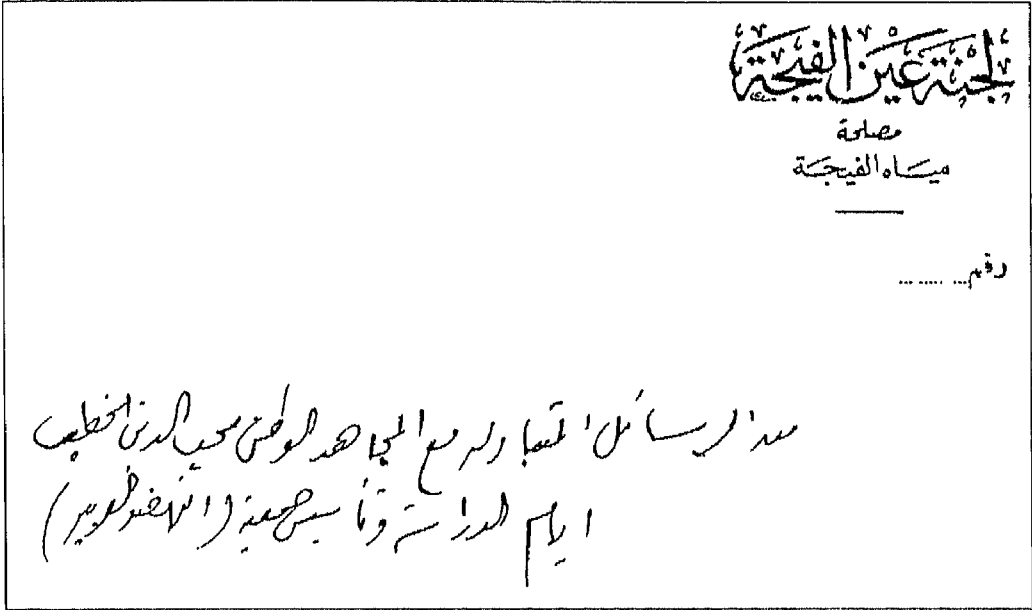 لجنة عين الفيجة
مصلحة
مياه الفيجة
رقم ... ..... ...
من الرسائل المتبادله مع المجاهد الوطني محب الدين الخطيب
ايام الدراسة وتأسيس جمعية (النهضة العربية)